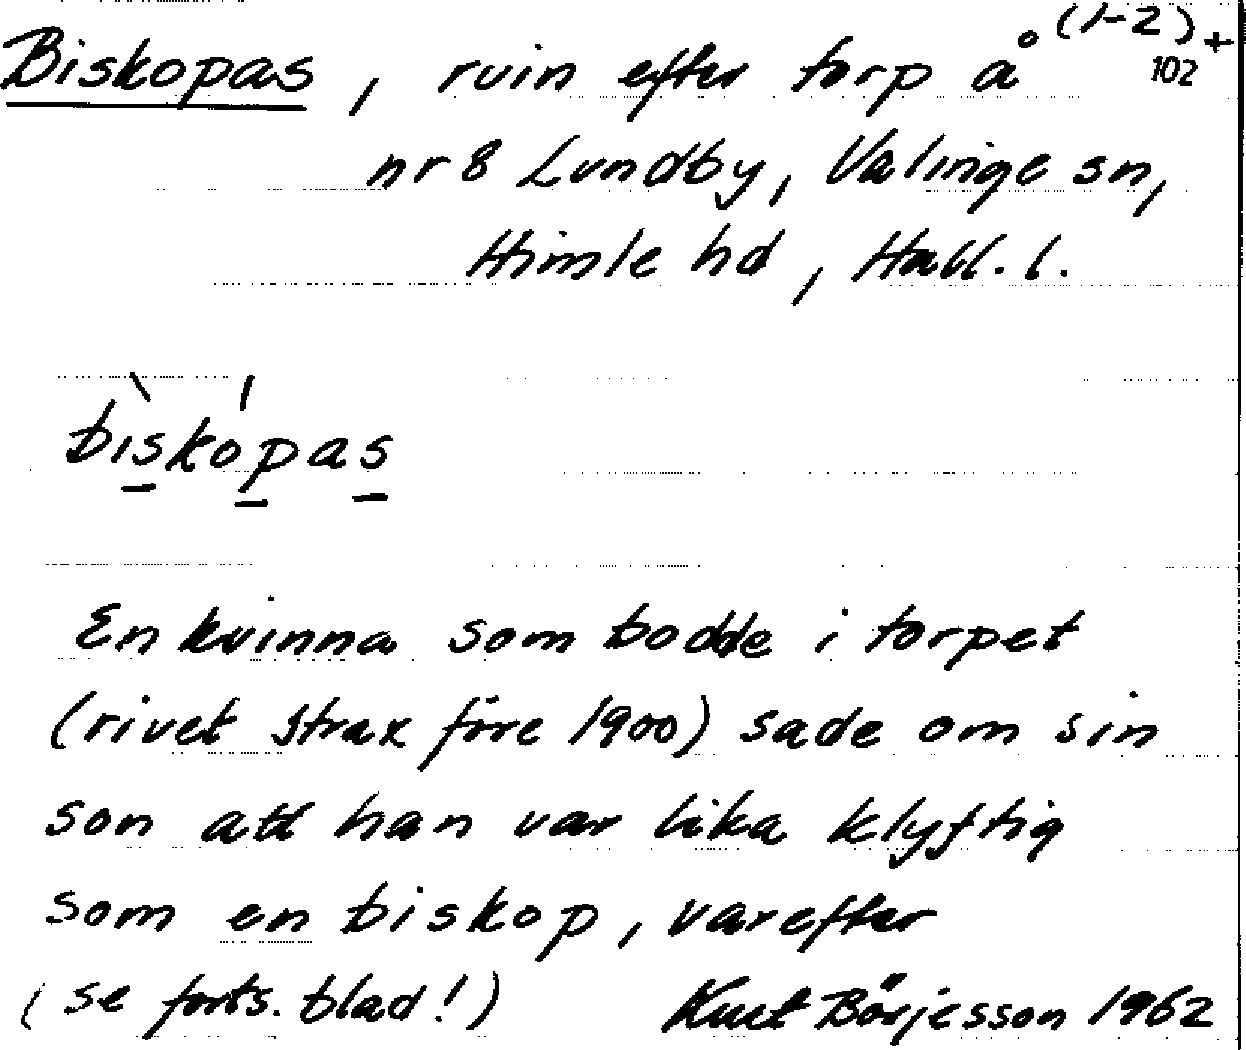 (1-2) +
Biskopas, ruin efter torp å 102
nr 8 Lundby, Valinge sn,
Himle hd, Hall. l.
bìskópas
En kvinna som bodde i torpet
(rivet strax före 1900) sade om sin
son att han var lika klyftig
som en biskop, varefter
(se forts. blad!) Kurt Börjesson 1962